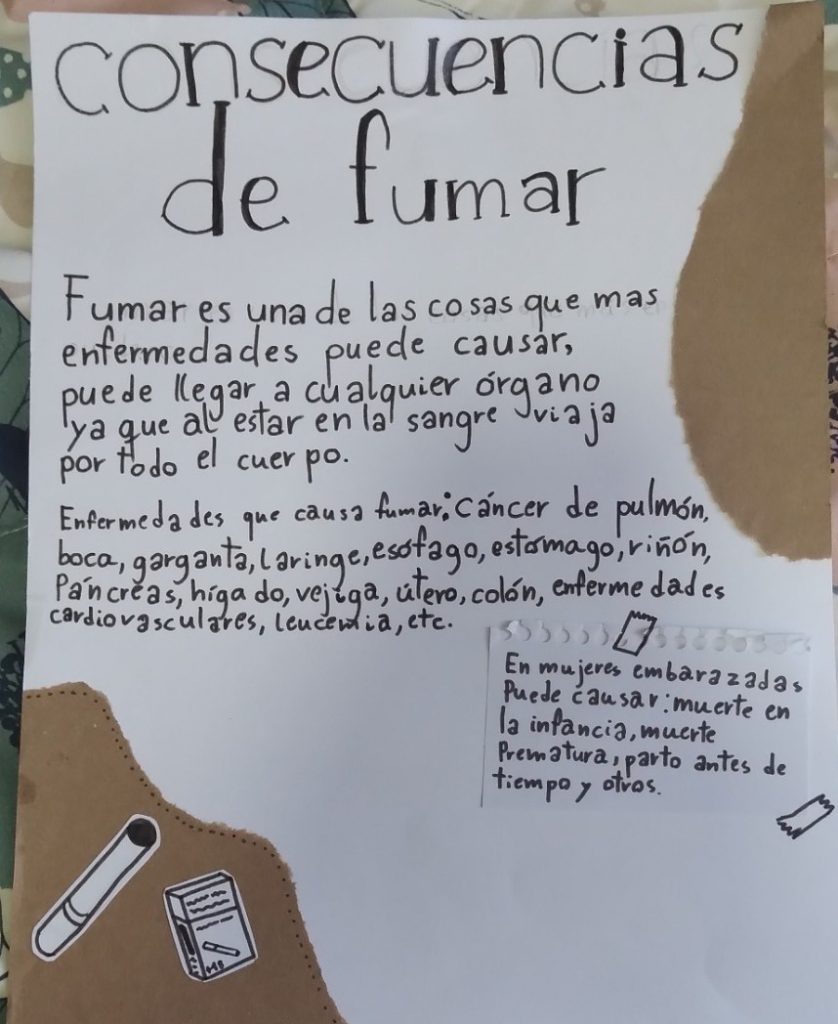 CONSECUENCIAS
de fumar
Fumar es una de las cosas que mas
enfermedades puede causar,
puede llegar a cualquier órgano
ya que al estar en la sangre viaja
por todo el cuerpo.
Enfermedades que causa fumar: Cáncer de pulmón,
boca, garganta, laringe, esófago, estómago, riñón,
Páncreas, hígado, vejiga, útero, colón, enfermedades
cardiovasculares, leucemia, etc.
En mujeres embarazadas
Puede causar: muerte en
la infancia, muerte
Prematura, parto antes de
tiempo y otros.